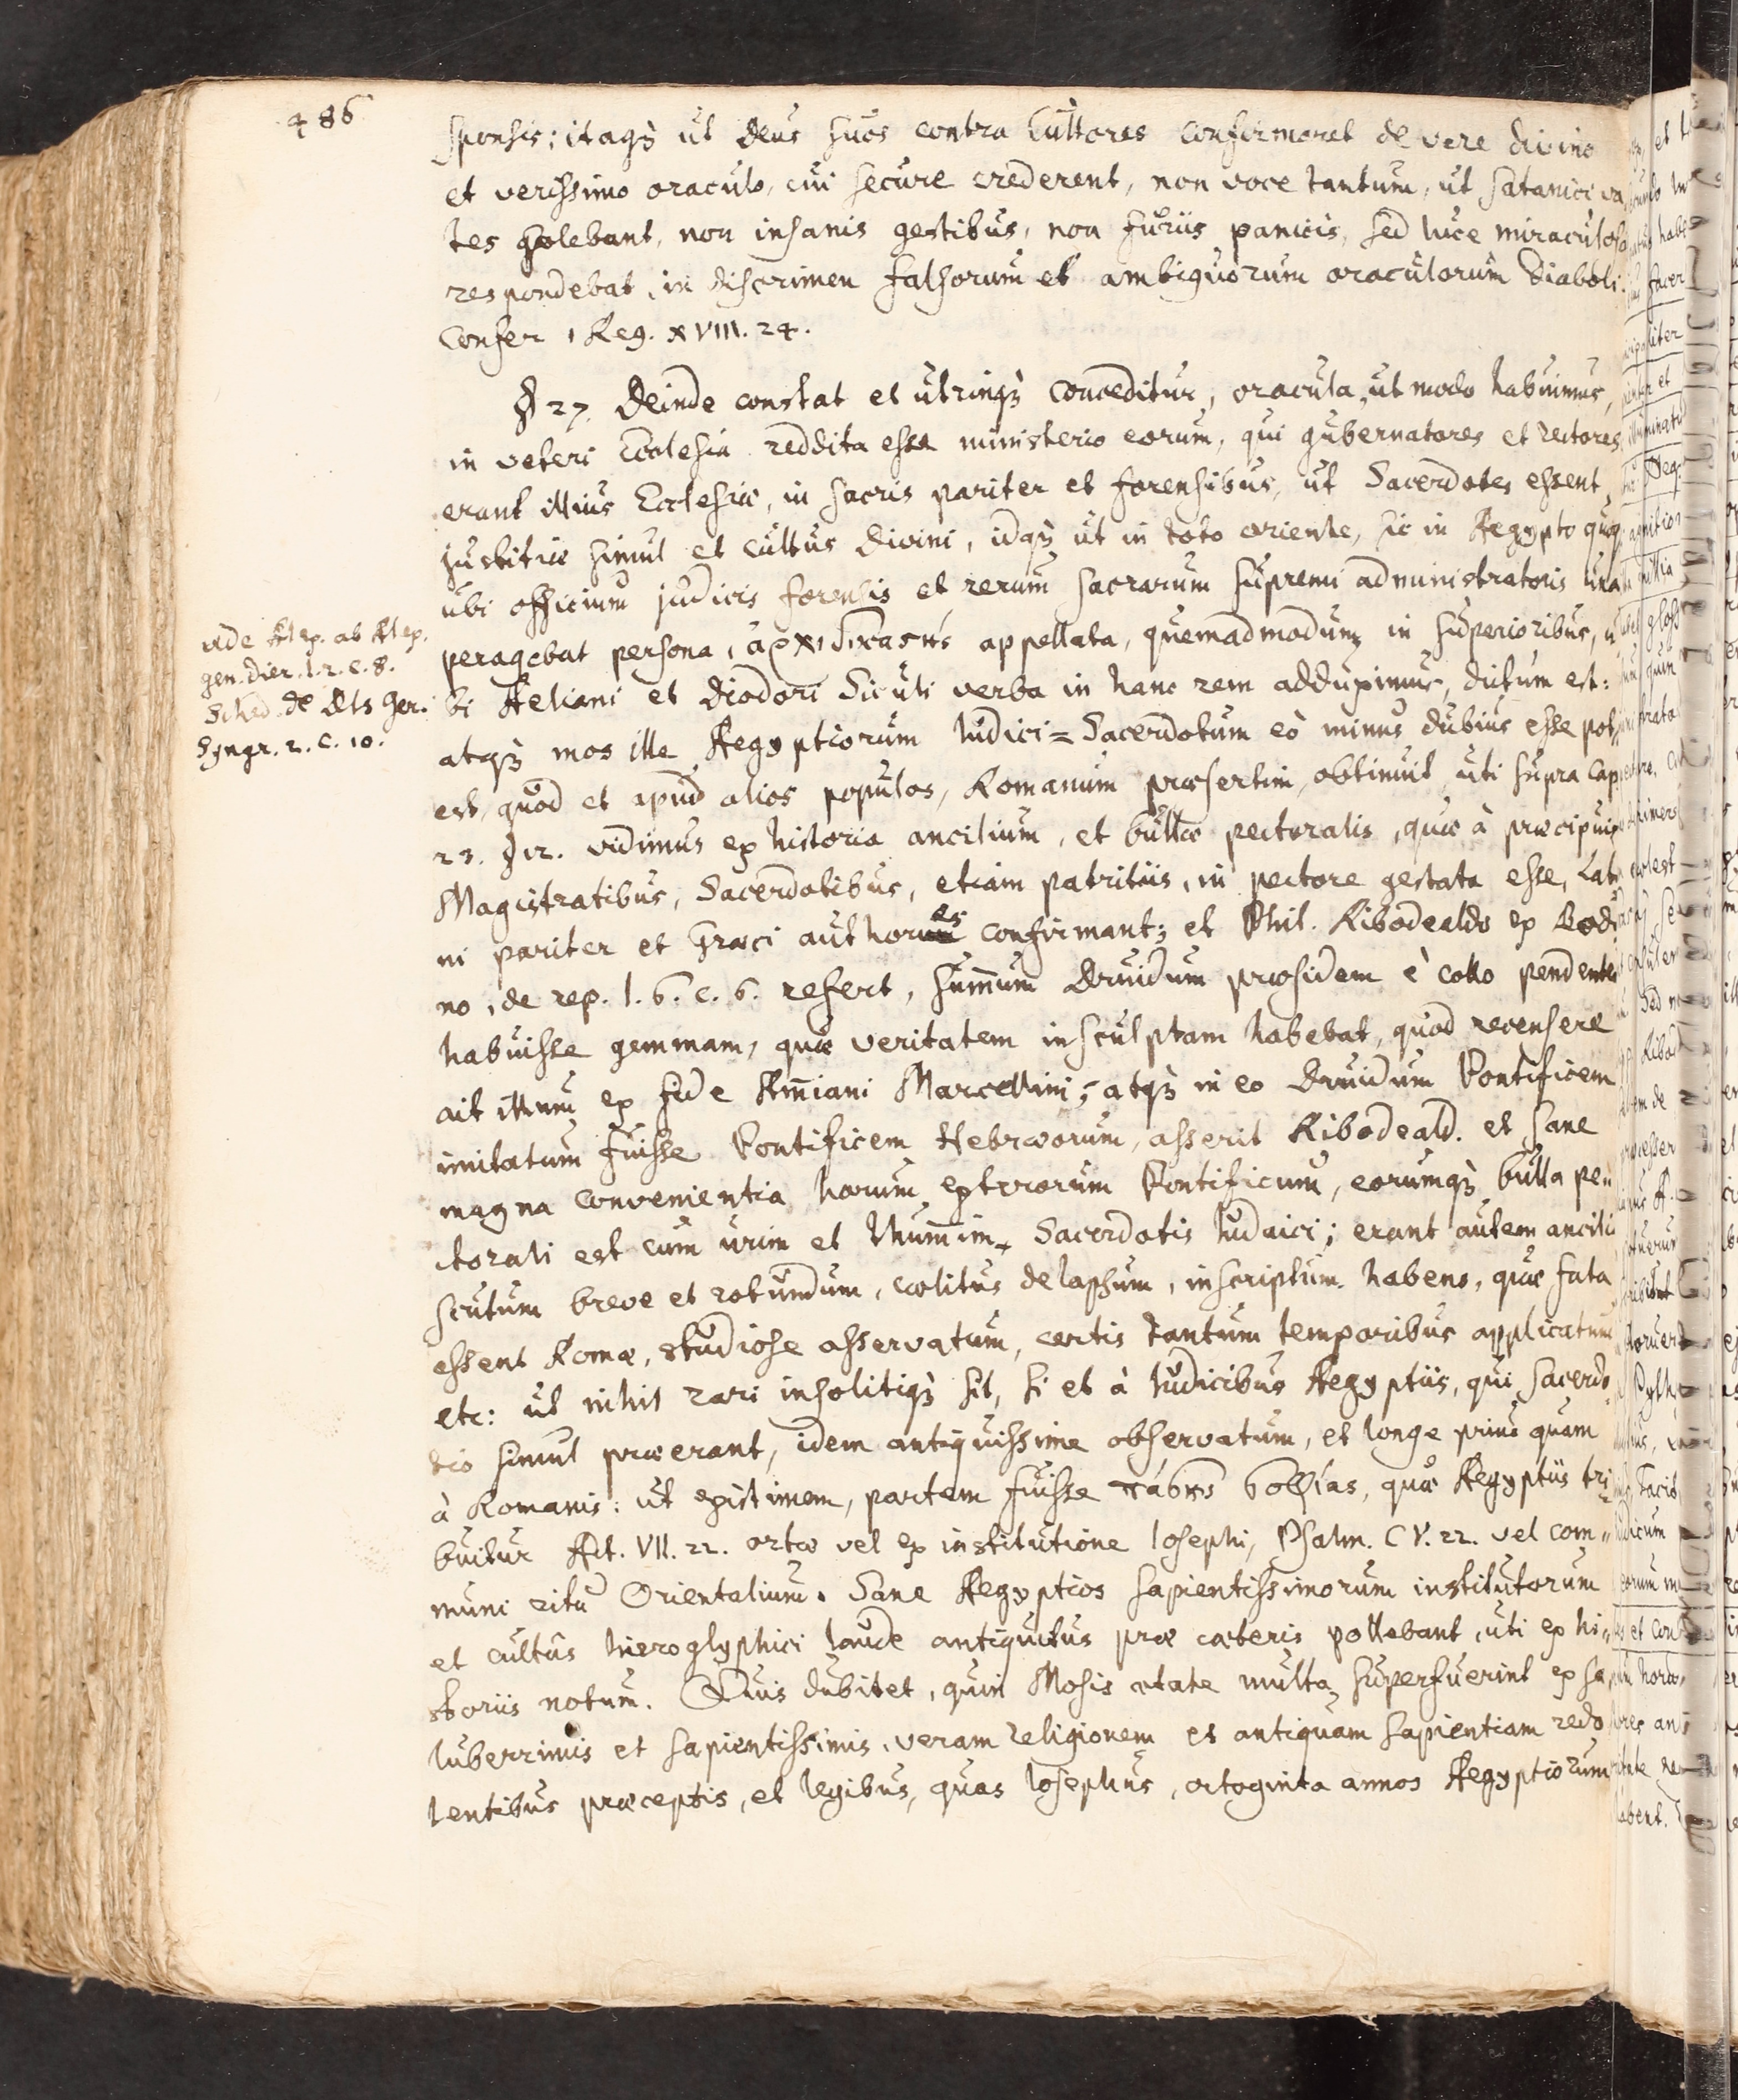 486
sponsis; itaqȝ ut Deus suos contra cultores confirmaret de vere divino
et verissimo oraculo, cui secure crederent, non voce tantum, ut Satanici va
tes solebant, non insanis gestibus, non furiis panicis, sed luce miraculosa
respondebat, in discrimen falsorum et ambiguorum oraculorum Diaboli.
Confer 1 Reg. XVIII. 24.
§ 27. Deinde constat et utrinqȝ conceditur, oracula, ut modo habuimus,
in veteri Ecclesiâ reddita esse ministerio eorum, qui gubernatores et rectores
erant illius Ecclesiæ, in sacris pariter et forensibus, ut Sacerdotes essent
justitiæ simul et cultus Divini, idqȝ ut in toto oriente, sic in Aegypto quoqȝ
ubi officium judicis forensis et rerum sacrarum supremi administratoris una
peragebat persona, ἀρχιδικαστὴς appellata, quemadmodum in superioribus, u
bi Aeliani et Diodori Siculi verba in hanc rem adduximus, dictum est:
vide Alex. ab Alex.
gen. dier. l. 2. c. 8.
Sched. de Dis Ger.
Syngr. 2. c. 10.
atqȝ mos ille Aegyptiorum Iudici=Sacerdotum eò minus dubius esse pot
est, quod et apud alios populos, Romanum præsertim, obtinuit, uti supra cap
23. § 12. vidimus ex historia ancilium, et bullæ pectoralis, quæ à præcipuis
Magistratibus, Sacerdotibus, etiam patritiis, in pectore gestata esse, Lati
ni pariter et Græci authores confirmant; et Phil. Ribodealdo ex Bodi
no, de rep. l. 6. c. 6. refert, summum Druidum præsidem è collo pendentem
habuisse gemmam, quæ veritatem insculptam habebat, quod recensere
ait illum ex fide Am̄iani Marcellini; atqȝ in eo Druidum Pontificem
imitatum fuisse Pontificem Hebræorum, asserit Ribodeald. et sane
magna convenientia horum exterorum Pontificum, eorumqȝ bulla pec
torali est cum urim et thum̄im Sacerdotis Iudaici; erant autem ancilia
scutum breve et rotundum, cœlitus delapsum, inscriptum habens, quæ fata
essent Romæ, studiose asservatum, certis tantum temporibus applicatum
etc: ut nihil rari insolitiqȝ sit, si et à Iudicibus Aegyptiis, qui Sacerdo
tio simul præerant, idem antiquissime observatum, et longe prius quam
à Romanis: ut existimem, partem fuisse πάσης σοφίας, quæ Aegyptiis tri
buitur Act. VII. 22. ortæ vel ex institutione Iosephi, Psalm. CV. 22. vel com„
muni ritu Orientalium. Sane Aegyptios sapientissimorum institutorum
et cultûs hieroglyphici laude antiquitus præ cæteris pollebant, uti ex hi„
storiis notum. Quis dubitet, quin Mosis ætate multa superfuerint ex sa
luberrimis et sapientissimis, veram religionem et antiquam sapientiam redo
lentibus præceptis, et legibus, quas Iosephus, octoginta annos Aegyptiorum